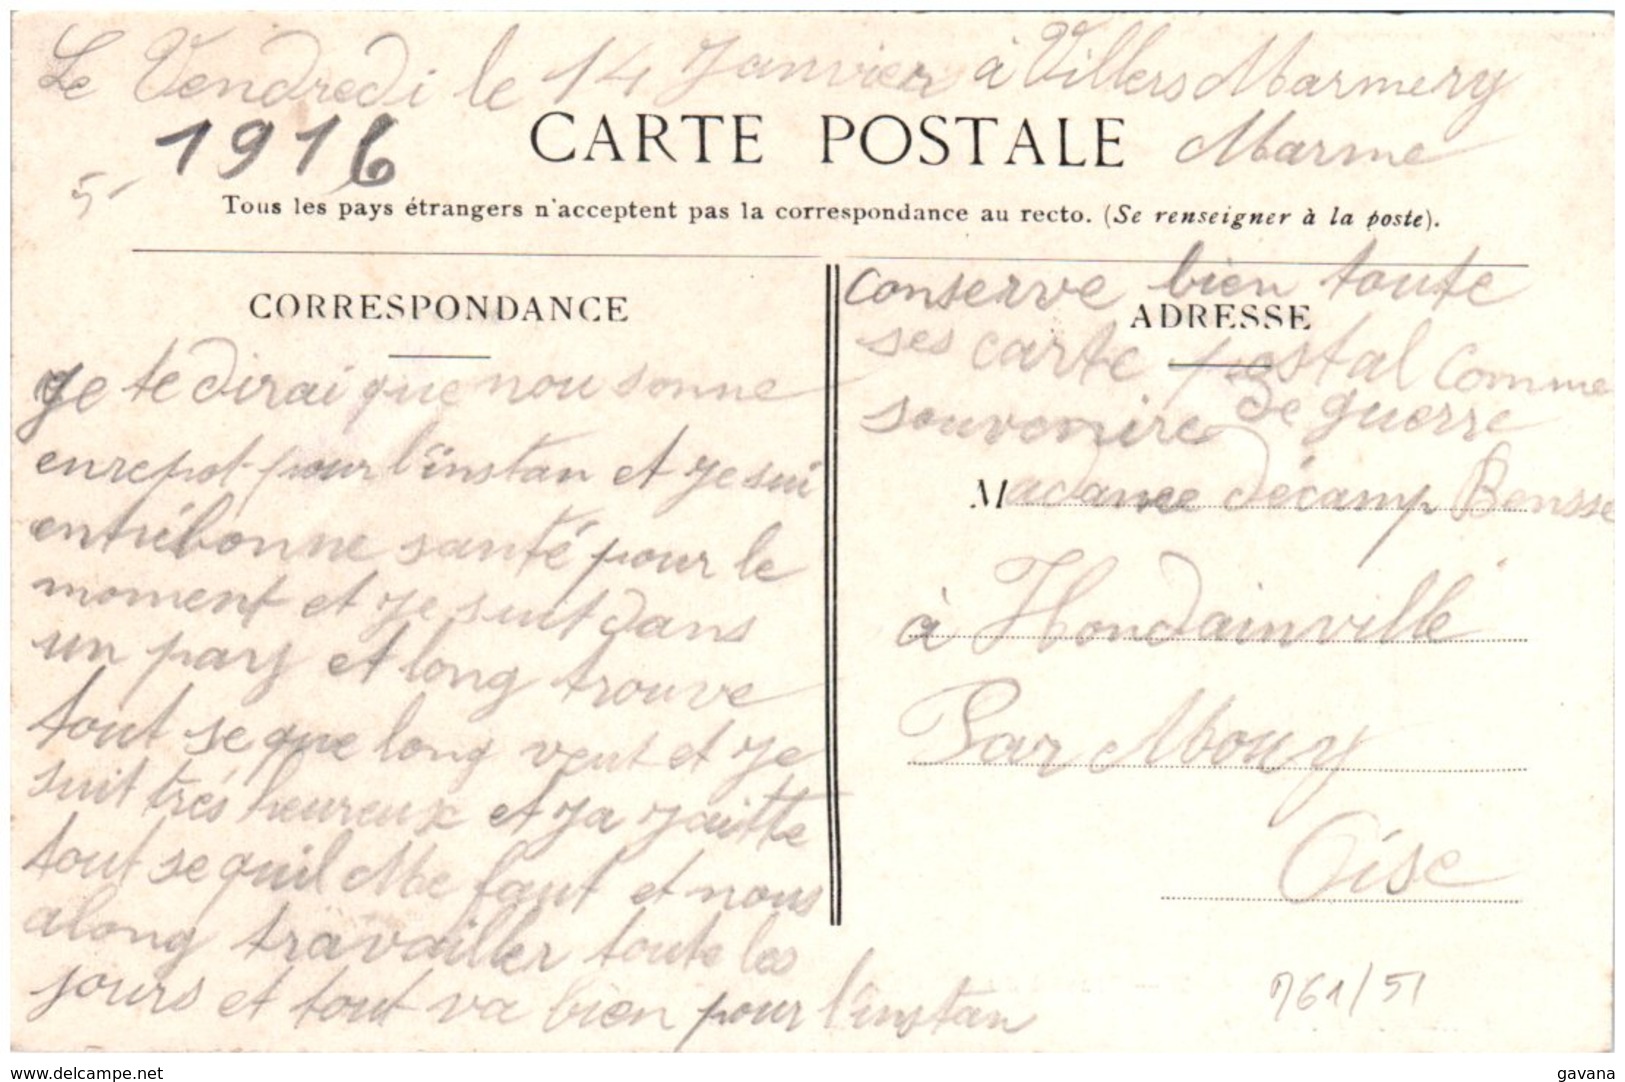 Le Vendredi le 14 Janvier à Villers Marmery
1916
CARTE POSTALE
Marme
5-
Tous les pays étrangers n'acceptent pas la correspondance au recto. (Se renseigner à la poste).
CORRESPONDANCE
Je te dirai que nou somme
en repot pour l'instan et Je sui
en tré bonne santé pour le
moment et Je suit dans
un pay et long trouve
tout se que long veut et Je
suit trés heureux et Ja Jaitte
tout se quil Me faut et nous
along travailler toute les
jours et tout va bien pour l'instan
conserve bien toute
ADRESSE
ses carte postal comme
souvenire de guerre
Madame Décamp Bensse
à Hondainville
Par Mouy
Oise
761/51
delcampe.net
gavana